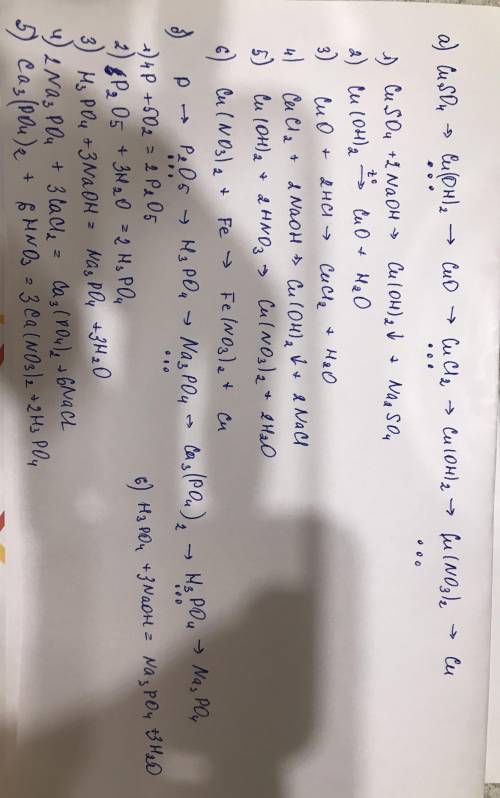 а) CuSO₄ → Cu(OH)₂ → CuO → CuCl₂ → Cu(OH)₂ → Cu(NO₃)₂ → Cu
1) CuSO₄ + 2NaOH → Cu(OH)₂↓ + Na₂SO₄
2) Cu(OH)₂ →t° CuO + H₂O
3) CuO + 2HCl → CuCl₂ + H₂O
4) CuCl₂ + 2NaOH → Cu(OH)₂↓ + 2NaCl
5) Cu(OH)₂ + 2HNO₃ → Cu(NO₃)₂ + 2H₂O
6) Cu(NO₃)₂ + Fe → Fe(NO₃)₂ + Cu
д) P → P₂O₅ → H₃PO₄ → Na₃PO₄ → Ca₃(PO₄)₂ → H₃PO₄ → Na₃PO₄
1) 4P + 5O₂ = 2P₂O₅
2) P₂O₅ + 3H₂O = 2H₃PO₄
3) H₃PO₄ + 3NaOH = Na₃PO₄ + 3H₂O
4) 2Na₃PO₄ + 3CaCl₂ = Ca₃(PO₄)₂ + 6NaCl
5) Ca₃(PO₄)₂ + 6HNO₃ = 3Ca(NO₃)₂ + 2H₃PO₄
6) H₃PO₄ + 3NaOH = Na₃PO₄ + 3H₂O